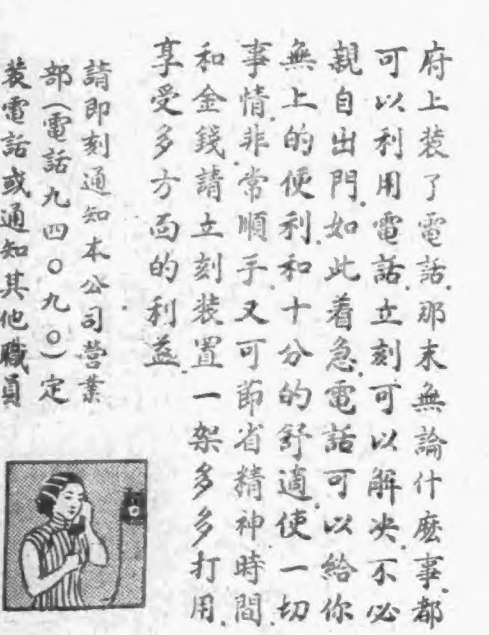 府上裝了電話.那末無論什麽事.都
可以利用電話.立刻可以解决.不必
親自出門.如此着急.電話可以給你
無上的便利.和十分的舒適.使一切
事情.非常順手.又可節省精神時間.
和金錢請立刻裝置一架多多打用.
享受多方面的利益.
請即刻通知本公司營業
部(電話九四〇九〇)定
裝電話或通知其他職員